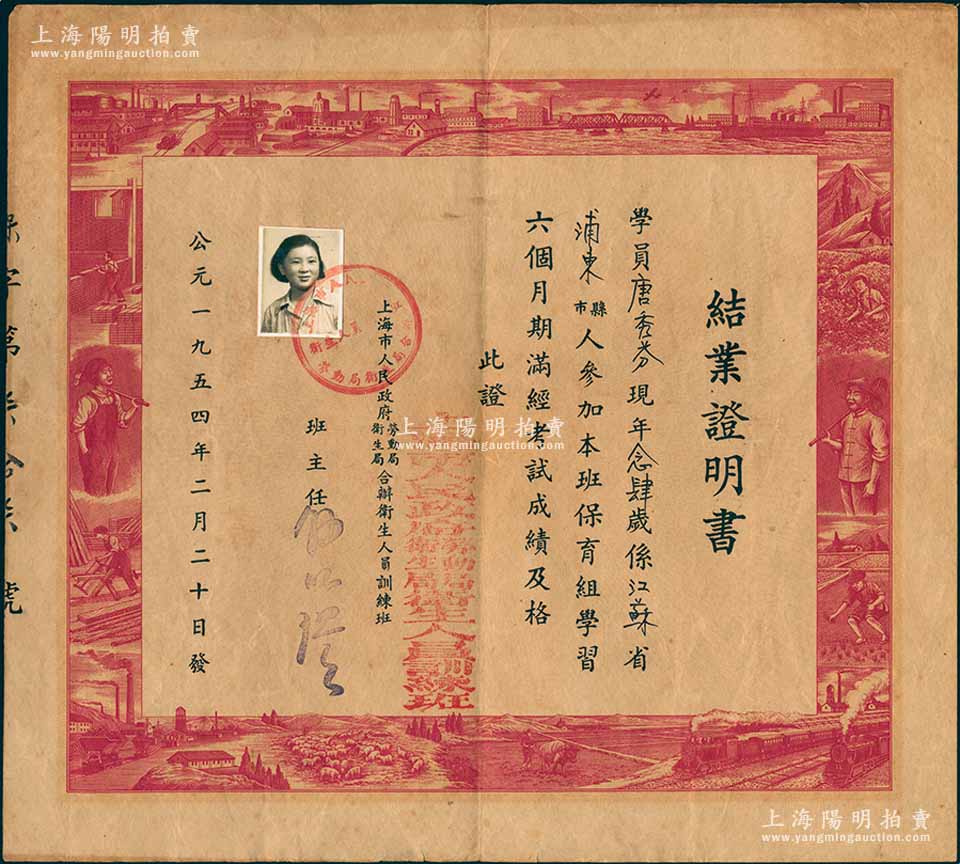 上海陽明拍賣
www.yangmingauction.com
結業證明書
學員唐秀芬現年念肆歲係江蘇省
浦東縣市人參加本班保育組學習
六個月期滿經考試成績及格
此證
上海市人民政府勞動局衛生局合辦衛生人員訓練班
班主任
公元一九五四年二月二十日發
字第 號
上海陽明拍賣
www.yangmingauction.com
上海陽明拍賣
www.yangmingauction.com